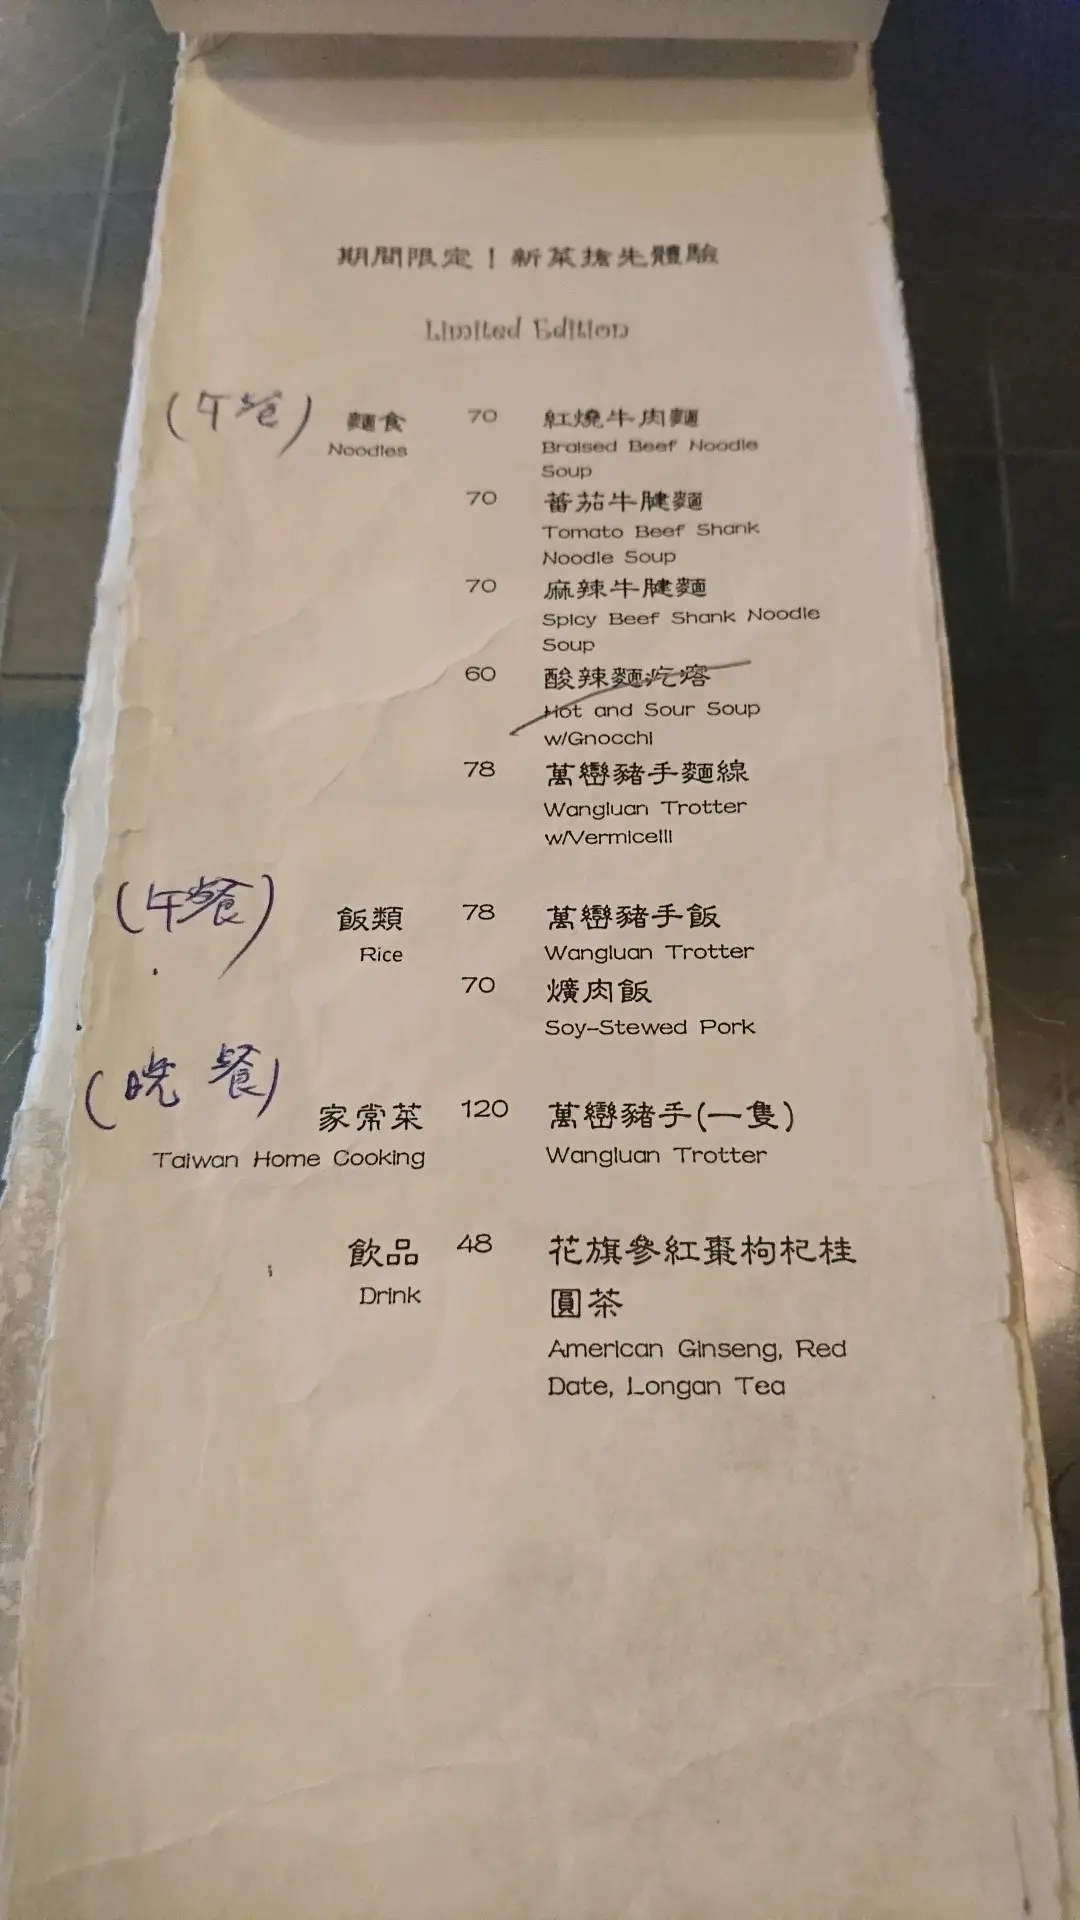 期間限定！新菜搶先體驗
Limited Edition
(午餐) 麵食 70 紅燒牛肉麵
Noodles Braised Beef Noodle
Soup
70 蕃茄牛腱麵
Tomato Beef Shank
Noodle Soup
70 麻辣牛腱麵
Spicy Beef Shank Noodle
Soup
60 酸辣麵疙瘩
Hot and Sour Soup
w/Gnocchi
78 萬巒豬手麵線
Wangluan Trotter
w/Vermicelli
(午餐) 飯類 78 萬巒豬手飯
Rice Wangluan Trotter
70 爌肉飯
Soy-Stewed Pork
(晚餐) 家常菜 120 萬巒豬手(一隻)
Taiwan Home Cooking Wangluan Trotter
飲品 48 花旗參紅棗枸杞桂
圓茶
Drink American Ginseng, Red
Date, Longan Tea